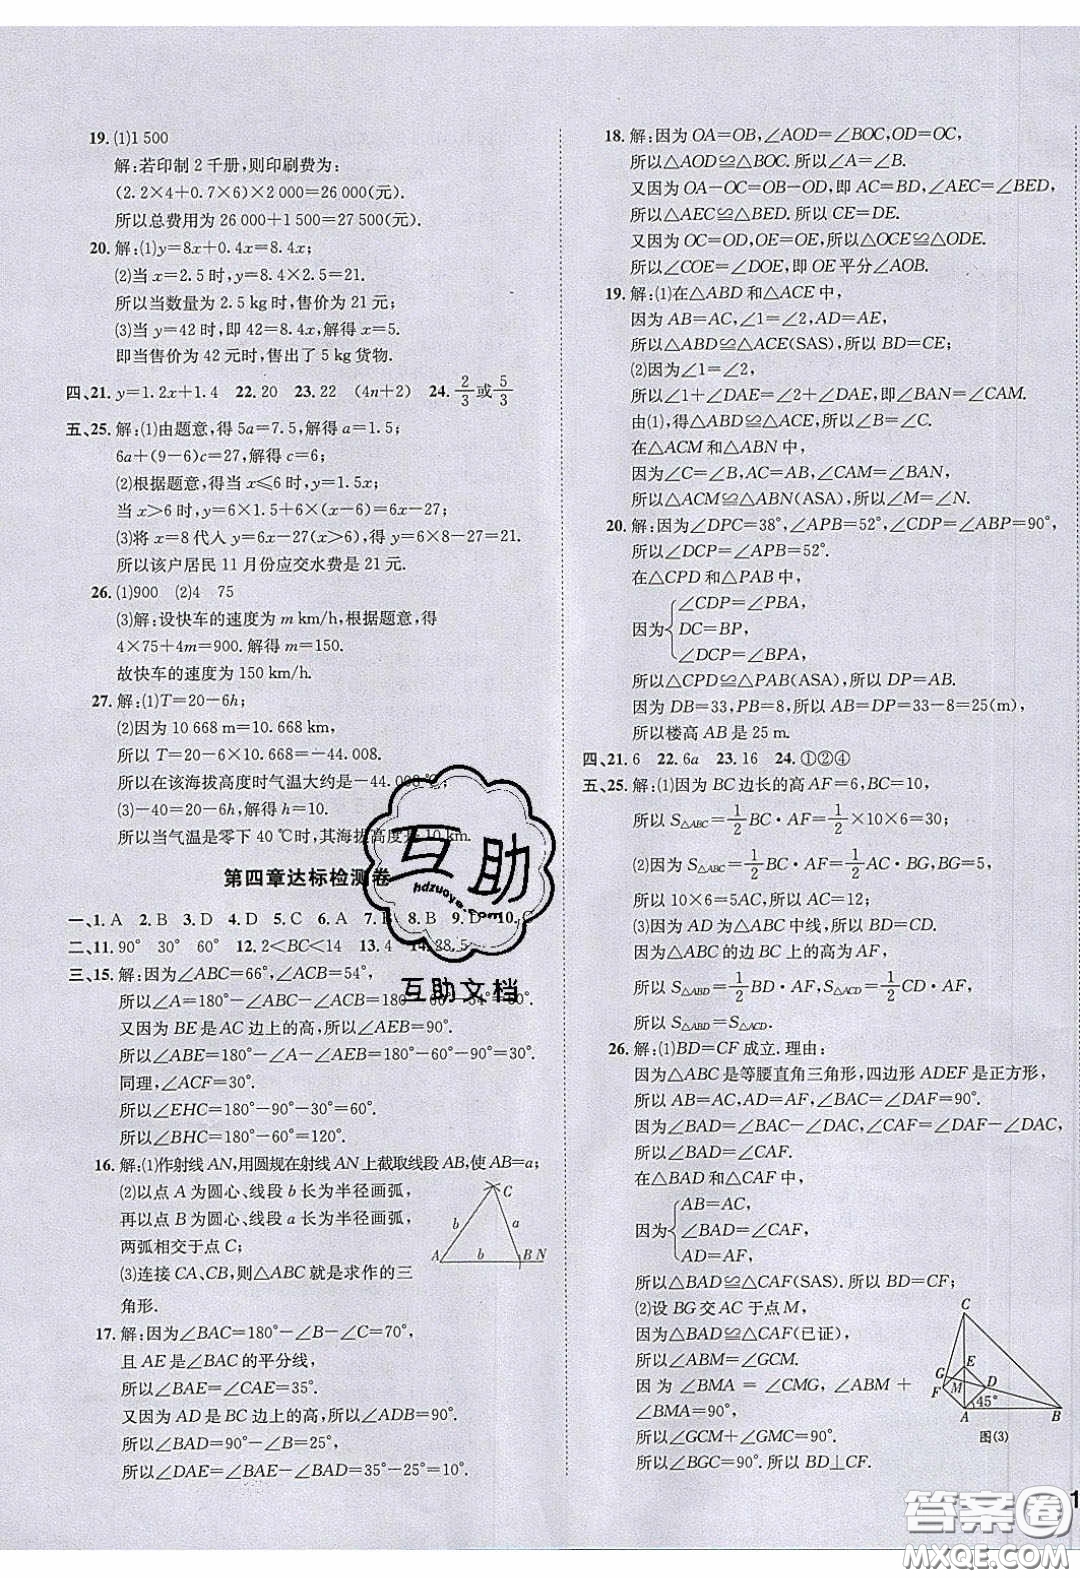 19. (1)1 500
解:若印制 2 千册,则印刷费为:
(2.2×4+0.7×6)×2 000=26 000(元).
所以总费用为 26 000+1 500=27 500(元).
20. 解:(1)y=8x+0.4x=8.4x;
(2)当 x=2.5 时,y=8.4×2.5=21.
所以当数量为 2.5 kg时,售价为 21 元;
(3)当 y=42 时,即 42=8.4x,解得 x=5.
即当售价为 42 元时,售出了 5 kg 货物.
四、21. y=1.2x+1.4 22. 20 23. 22 (4n+2) 24. 2/3或5/3
五、25. 解:(1)由题意,得 5a=7.5,解得 a=1.5;
6a+(9-6)c=27,解得 c=6;
(2)根据题意,得当 x≤6 时,y=1.5x;
当 x>6 时,y=6×1.5+6×(x-6)=6x-27;
(3)将 x=8 代入 y=6x-27(x>6),得 y=6×8-27=21.
所以该户居民 11 月份应交水费是 21 元.
26. (1)900 (2)4 75
(3)解:设快车的速度为 m km/h,根据题意,得
4×75+4m=900. 解得 m=150.
故快车的速度为 150 km/h.
27. 解:(1)T=20-6h;
(2)因为 10 668 m=10.668 km,
所以 T=20-6×10.668=-44.008.
所以在该海拔高度时气温大约是-44.008 ℃;
(3)-40=20-6h,解得 h=10.
所以当气温是零下 40 ℃时,其海拔高度是 10 km.
第四章达标检测卷
一、1. A 2. B 3. D 4. D 5. C 6. A 7. B 8. B 9. D 10. C
二、11. 90° 30° 60° 12. 2<BC<14 13. 4 14. 28.5
三、15. 解:因为∠ABC=66°,∠ACB=54°,
所以∠A=180°-∠ABC-∠ACB=180°-66°-54°=60°.
又因为 BE是 AC 边上的高,所以∠AEB=90°.
所以∠ABE=180°-∠A-∠AEB=180°-60°-90°=30°.
同理,∠ACF=30°.
所以∠EHC=180°-90°-30°=60°.
所以∠BHC=180°-60°=120°.
16. 解:(1)作射线 AN,用圆规在射线 AN 上截取线段 AB,使 AB=a;
(2)以点 A 为圆心、线段 b 长为半径画弧,
再以点 B 为圆心、线段 a 长为半径画弧,
两弧相交于点 C;
(3)连接 CA、CB,则△ABC 就是求作的三
角形.
C
b a
A b B N
17. 解:因为∠BAC=180°-∠B-∠C=70°,
且 AE 是∠BAC 的平分线,
所以∠BAE=∠CAE=35°.
又因为 AD 是 BC 边上的高,所以∠ADB=90°.
所以∠BAD=90°-∠B=25°,
所以∠DAE=∠BAE-∠BAD=35°-25°=10°.
18. 解:因为 OA=OB,∠AOD=∠BOC,OD=OC,
所以△AOD≌△BOC. 所以∠A=∠B.
又因为 OA-OC=OB-OD,即 AC=BD,∠AEC=∠BED,
所以△AEC≌△BED. 所以 CE=DE.
又因为 OC=OD,OE=OE,所以△OCE≌△ODE.
所以∠COE=∠DOE,即 OE 平分∠AOB.
19. 解:(1)在△ABD 和△ACE 中,
因为 AB=AC,∠1=∠2,AD=AE,
所以△ABD≌△ACE(SAS),所以 BD=CE;
(2)因为∠1=∠2,
所以∠1+∠DAE=∠2+∠DAE,即∠BAN=∠CAM.
由(1),得△ABD≌△ACE,所以∠B=∠C.
在△ACM 和△ABN 中,
因为∠C=∠B,AC=AB,∠CAM=∠BAN,
所以△ACM≌△ABN(ASA),所以∠M=∠N.
20. 解:因为∠DPC=38°,∠APB=52°,∠CDP=∠ABP=90°,
所以∠DCP=∠APB=52°.
在△CPD 和△PAB 中,
∠CDP=∠PBA,
因为 DC=BP,
∠DCP=∠BPA,
所以△CPD≌△PAB(ASA),所以 DP=AB.
因为 DB=33,PB=8,所以 AB=DP=33-8=25(m),
所以楼高 AB是 25 m.
四、21. 6 22. 6a 23. 16 24. ①②④
五、25. 解:(1)因为 BC 边长的高 AF=6,BC=10,
所以 S△ABC=1/2BC·AF=1/2×10×6=30;
(2)因为 S△ABC=1/2BC·AF=1/2AC·BG,BG=5,
所以 10×6=5AC,所以 AC=12;
(3)因为 AD 是△ABC 中线,所以 BD=CD.
因为△ABC 的边 BC 上的高为 AF,
所以 S△ABD=1/2BD·AF,S△ACD=1/2CD·AF,
所以 S△ABD=S△ACD.
26. 解:(1)BD=CF 成立. 理由:
因为△ABC 是等腰直角三角形,四边形 ADEF 是正方形,
所以 AB=AC,AD=AF,∠BAC=∠DAF=90°.
因为∠BAD=∠BAC-∠DAC,∠CAF=∠DAF-∠DAC,
所以∠BAD=∠CAF.
在△BAD 和△CAF 中,
AB=AC,
因为 ∠BAD=∠CAF,
AD=AF,
所以△BAD≌△CAF(SAS). 所以 BD=CF;
(2)设 BG 交 AC 于点 M,
因为△BAD≌△CAF(已证),
所以∠ABM=∠GCM.
因为∠BMA=∠CMG,∠ABM+
∠BMA=90°,
所以∠GCM+∠GMC=90°.
所以∠BGC=90°. 所以 BD⊥CF.
C
G E
F M D
45°
A B
图(3)
互助
hdzuoye.com
互助文档
1
答案卷
MXQE.COM